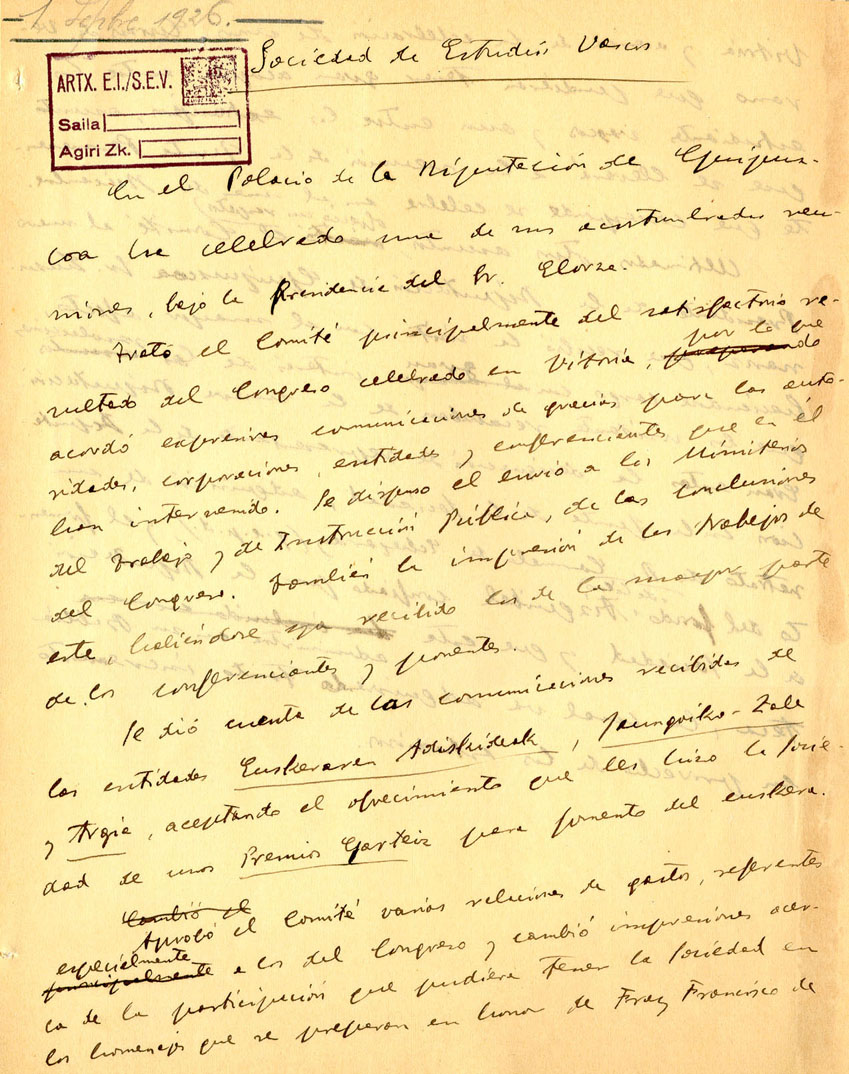 1 Sepbre 1926.-
Sociedad de Estudios Vascos
ARTX. E.I./S.E.V.
Saila
Agiri Zk.
En el Palacio de la Diputación de Guipuz-
coa ha celebrado una de sus acostumbradas reu-
niones, bajo la Presidencia del Sr. Elorza.
Trató el Comité principalmente del satisfactorio re-
sultado del Congreso celebrado en Vitoria, por lo que
acordó expresivas comunicaciones de gracias para las auto-
ridades, corporaciones, entidades y conferenciantes que en él
han intervenido. Se dispuso el envío a los Ministerios
del Trabajo y de Instrucción Pública, de las conclusiones
del Congreso. También la impresión de los trabajos de
este, habiéndose ya recibido los de la mayor parte
de los conferenciantes y ponentes.
Se dió cuenta de las comunicaciones recibidas de
las entidades Euskeraren Adiskideak, Jaungoiko-Zale
y Argia, aceptando el ofrecimiento que les hizo la Socie-
dad de unos Premios Garteiz para fomento del euskera.
Cambió el
Aprobó el Comité varias relaciones de gastos, referentes
especialmente
principalmente a los del Congreso y cambió impresiones acer-
ca de la participación que pudiera tener la Sociedad en
los homenajes que se preparan en honor de Fray Francisco de